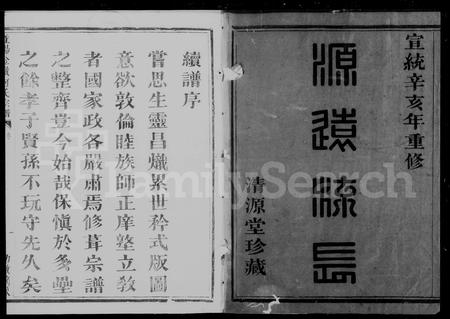 宣統辛亥年重修
源遠流長
清源堂珍藏
續譜序
嘗思生靈昌熾累世矜式版圖
意欲敦倫睦族師正庠塾立教
者國家政各嚴肅焉修葺宗譜
之整齊豈今始哉保慎於多壘
之餘孝子賢孫不玩守先久矣
FamilySearch